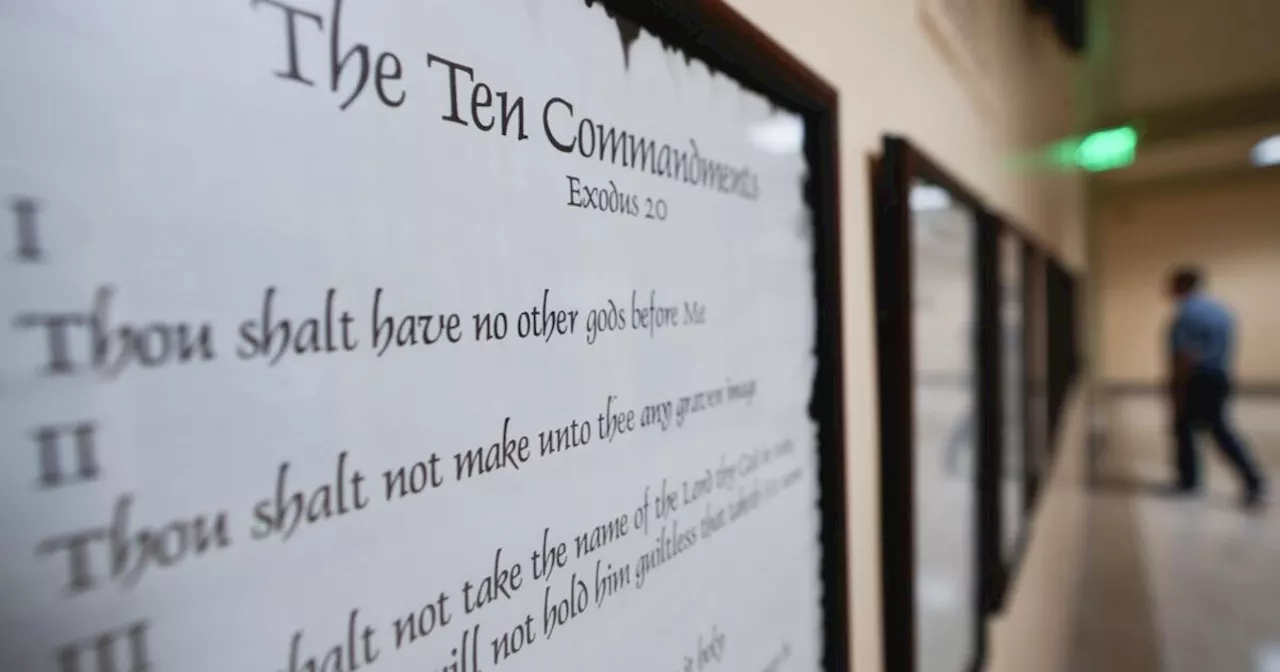 The Ten Commandments
Exodus 20
I
Thou shalt have no other gods before Me
II
Thou shalt not make unto thee any graven image
III
shalt not take the name of the Lord thy God in vain
will not hold him guiltless that taketh his name
it holy